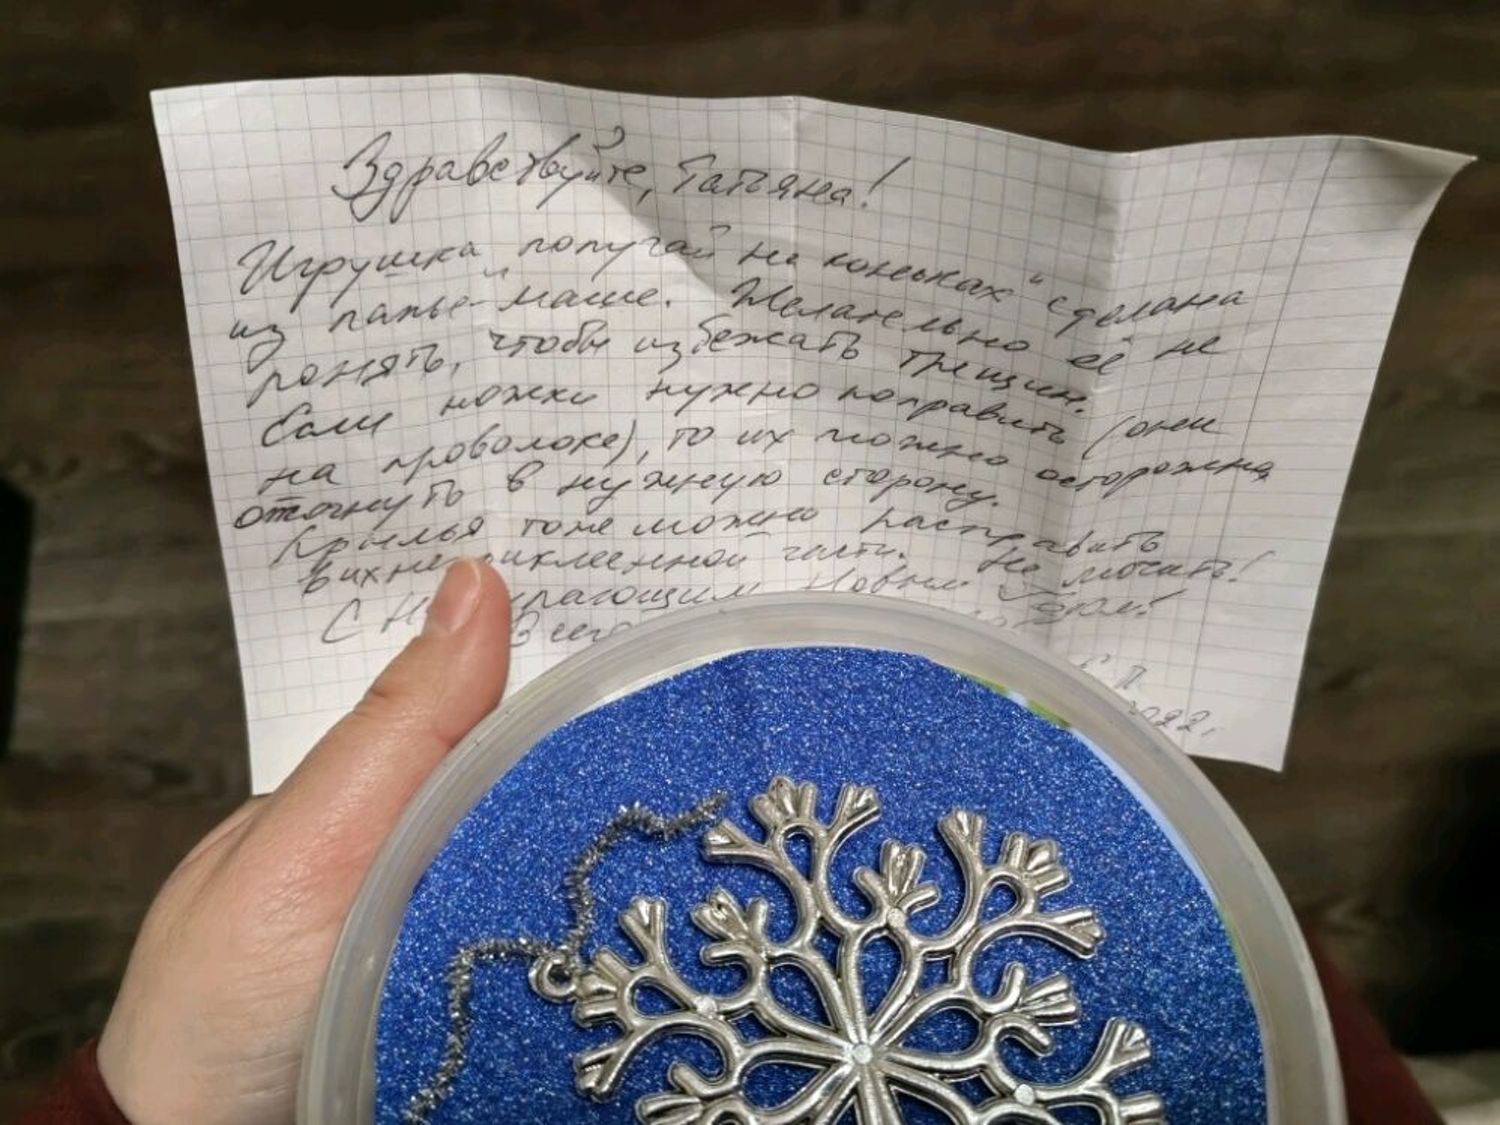 Здравствуйте, Татьяна!
Игрушка "попугай на коньках" сделана
из папье-маше. Желательно её не
ронять, чтобы избежать трещин.
Если ножки нужно поправить (они
на проволоке), то их можно осторожно
отогнуть в нужную сторону.
Крылья тоже можно расправить
в их неприклеенной части. Не мочить!
С Новым Годом!
Всего